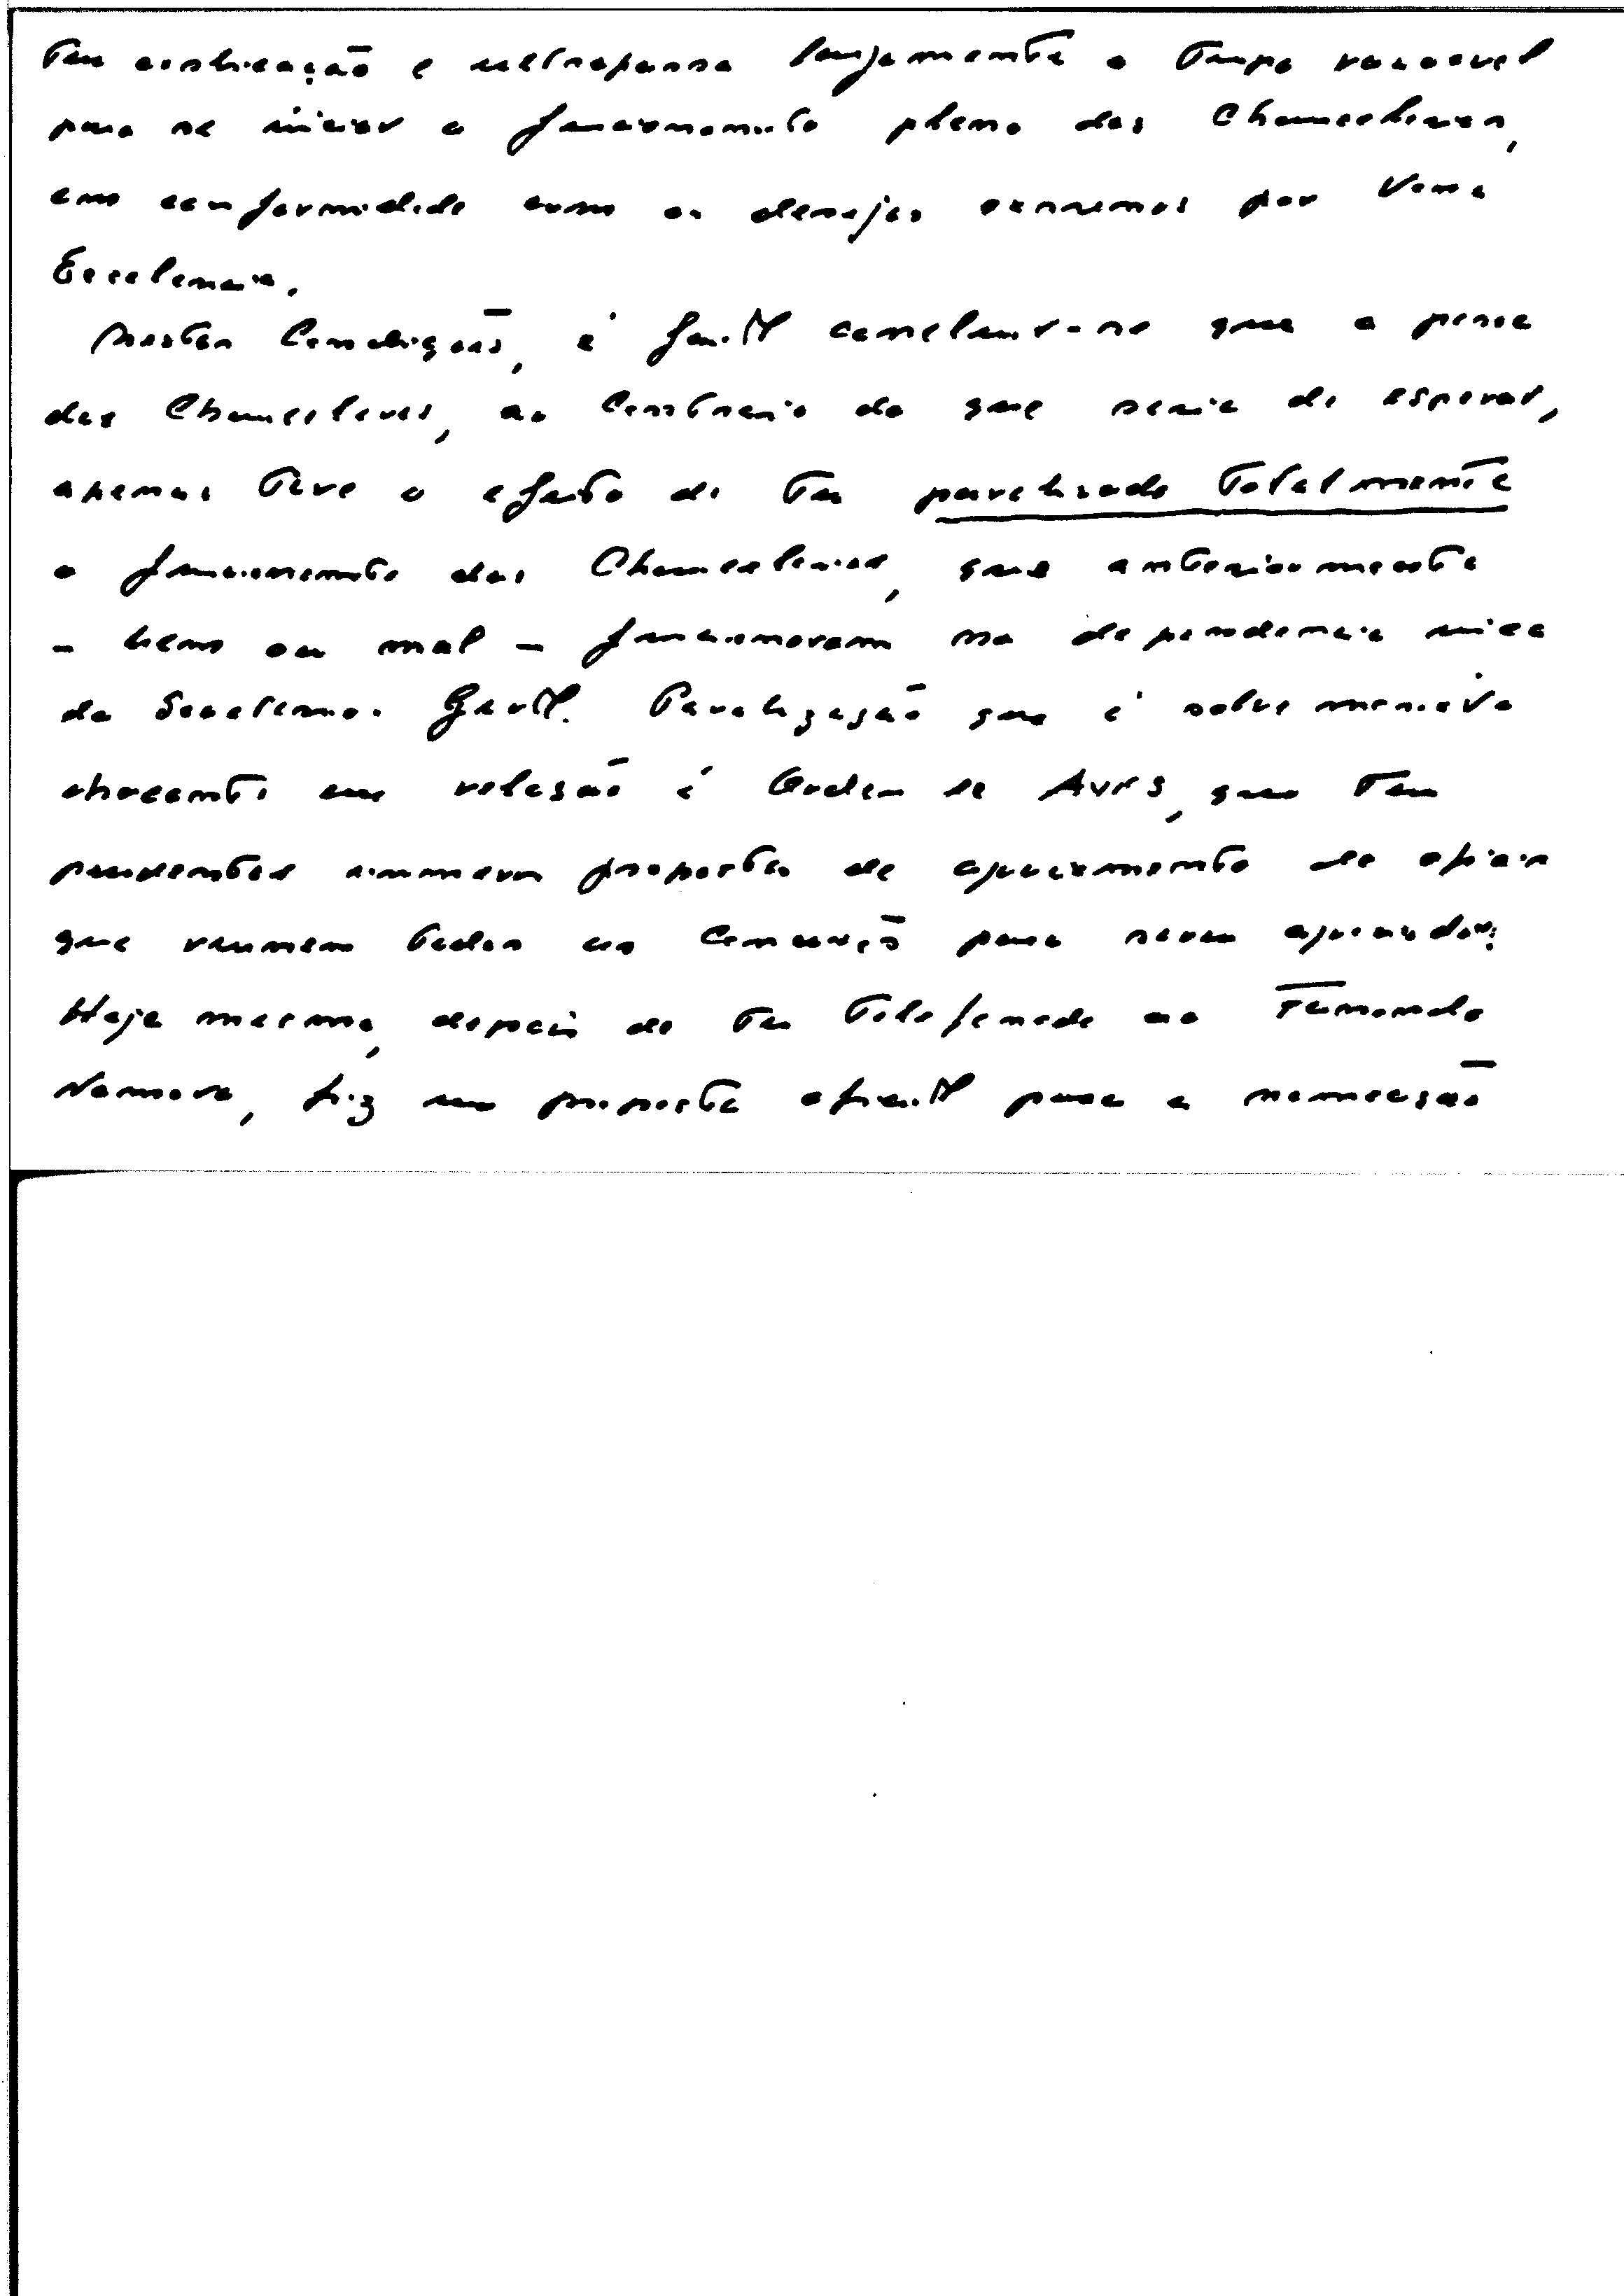 tem explicação e ultrapassa largamente o tempo razoavel
para se iniciar o funcionamento pleno das Chancelarias,
em conformidade com os desejos expressos por Vossa
Excelencia.
Nestas Condições, é facil concluir-se que a posse
dos Chanceleres, ao Contrario do que seria de esperar,
apenas teve o efeito de ter paralizado totalmente
o funcionamento das Chancelarias, que anteriormente
- bem ou mal - funcionavam na dependencia unica
da Secretaria Geral. Paralização que é sobremaneira
chocante em relação á Ordem de Avis, que tem
pendentes inumeras propostas de agraciamento de oficiais
que reunem todas as Condições para serem agraciados.
Hoje mesmo, depois de ter telefonado ao Fernando
Namora, fiz uma proposta oficial para a nomeação